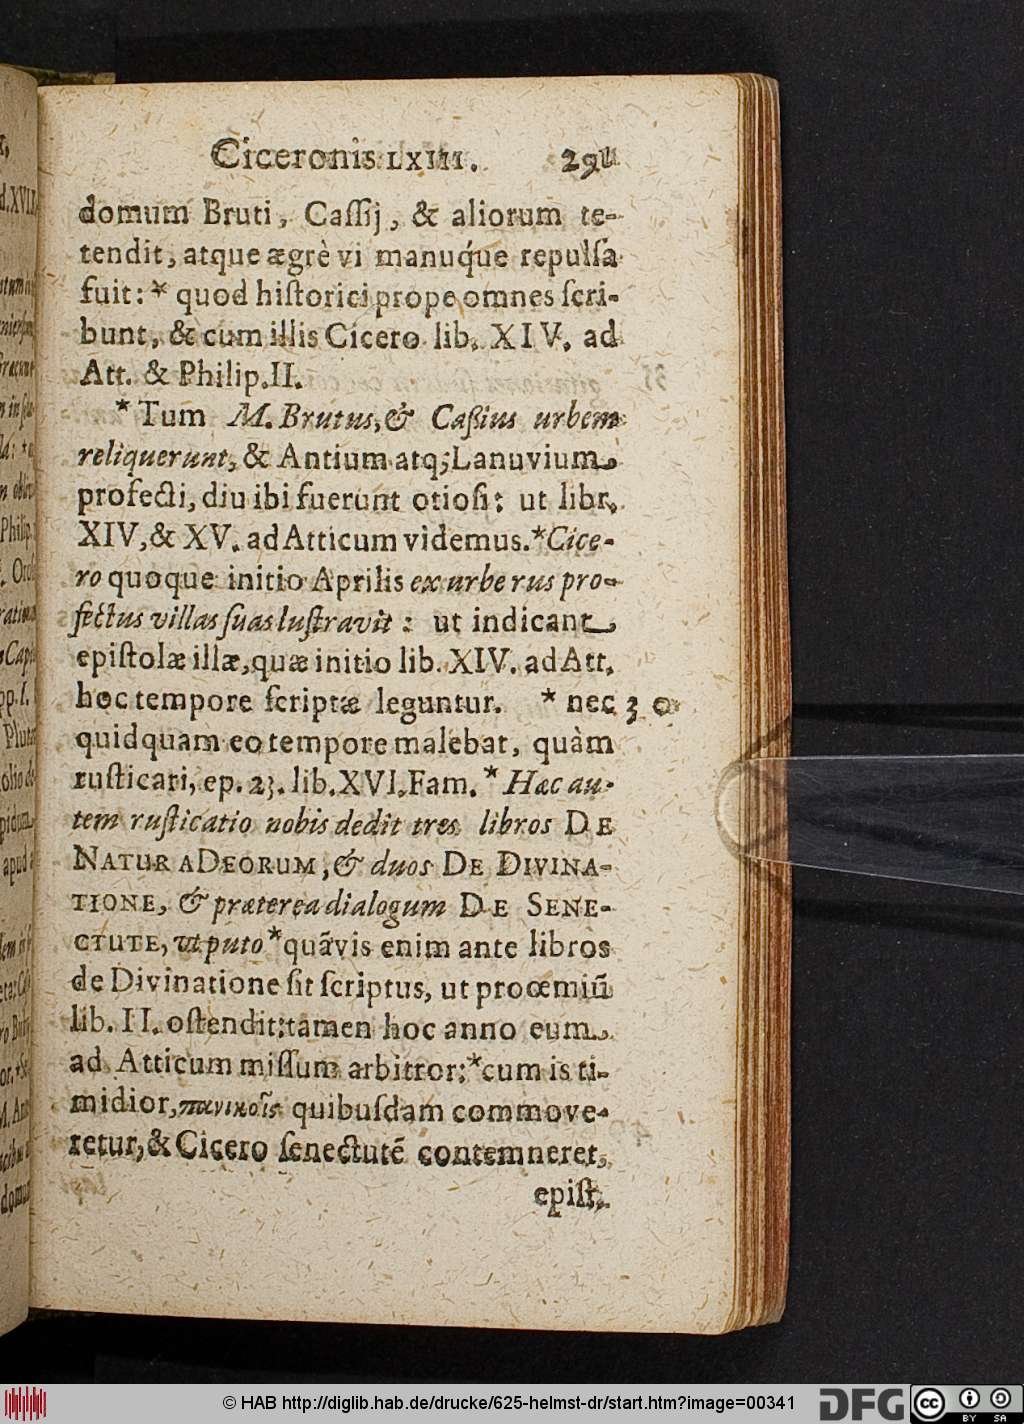 Ciceronis LXIII. 291
domum Bruti, Caſſij, & aliorum te-
tendit, atque ægrè vi manuq́ue repulſa
fuit: * quod hiſtorici prope omnes ſcri-
bunt, & cum illis Cicero lib. XIV. ad
Att. & Philip. II.
* Tum M. Brutus, & Caßius urbem
reliquerunt, & Antium atq; Lanuvium
profecti, diu ibi fuerunt otioſi: ut libr.
XIV, & XV. ad Atticum videmus. * Cice-
ro quoque initio Aprilis ex urbe rus pro-
fectus villas ſuas luſtravit: ut indicant
epiſtolæ illæ, quæ initio lib. XIV. ad Att.
hoc tempore ſcriptæ leguntur. * nec 30
quidquam eo tempore malebat, quàm
ruſticari, ep. 23. lib. XVI. Fam. * Hæc au-
tem ruſticatio nobis dedit tres libros DE
NATURA DEORUM, & duos DE DIVINA-
TIONE, & præterea dialogum DE SENE-
CTUTE, ut puto * quãvis enim ante libros
de Divinatione ſit ſcriptus, ut procemiũ
lib. II. oſtendit: tamen hoc anno eum
ad Atticum miſſum arbitror: * cum is ti-
midior, πανικοῖς quibuſdam commove-
retur, & Cicero ſenectutẽ contemneret,
epiſt.
© HAB http://diglib.hab.de/drucke/625-helmst-dr/start.htm?image=00341
DFG
cc
BY SA